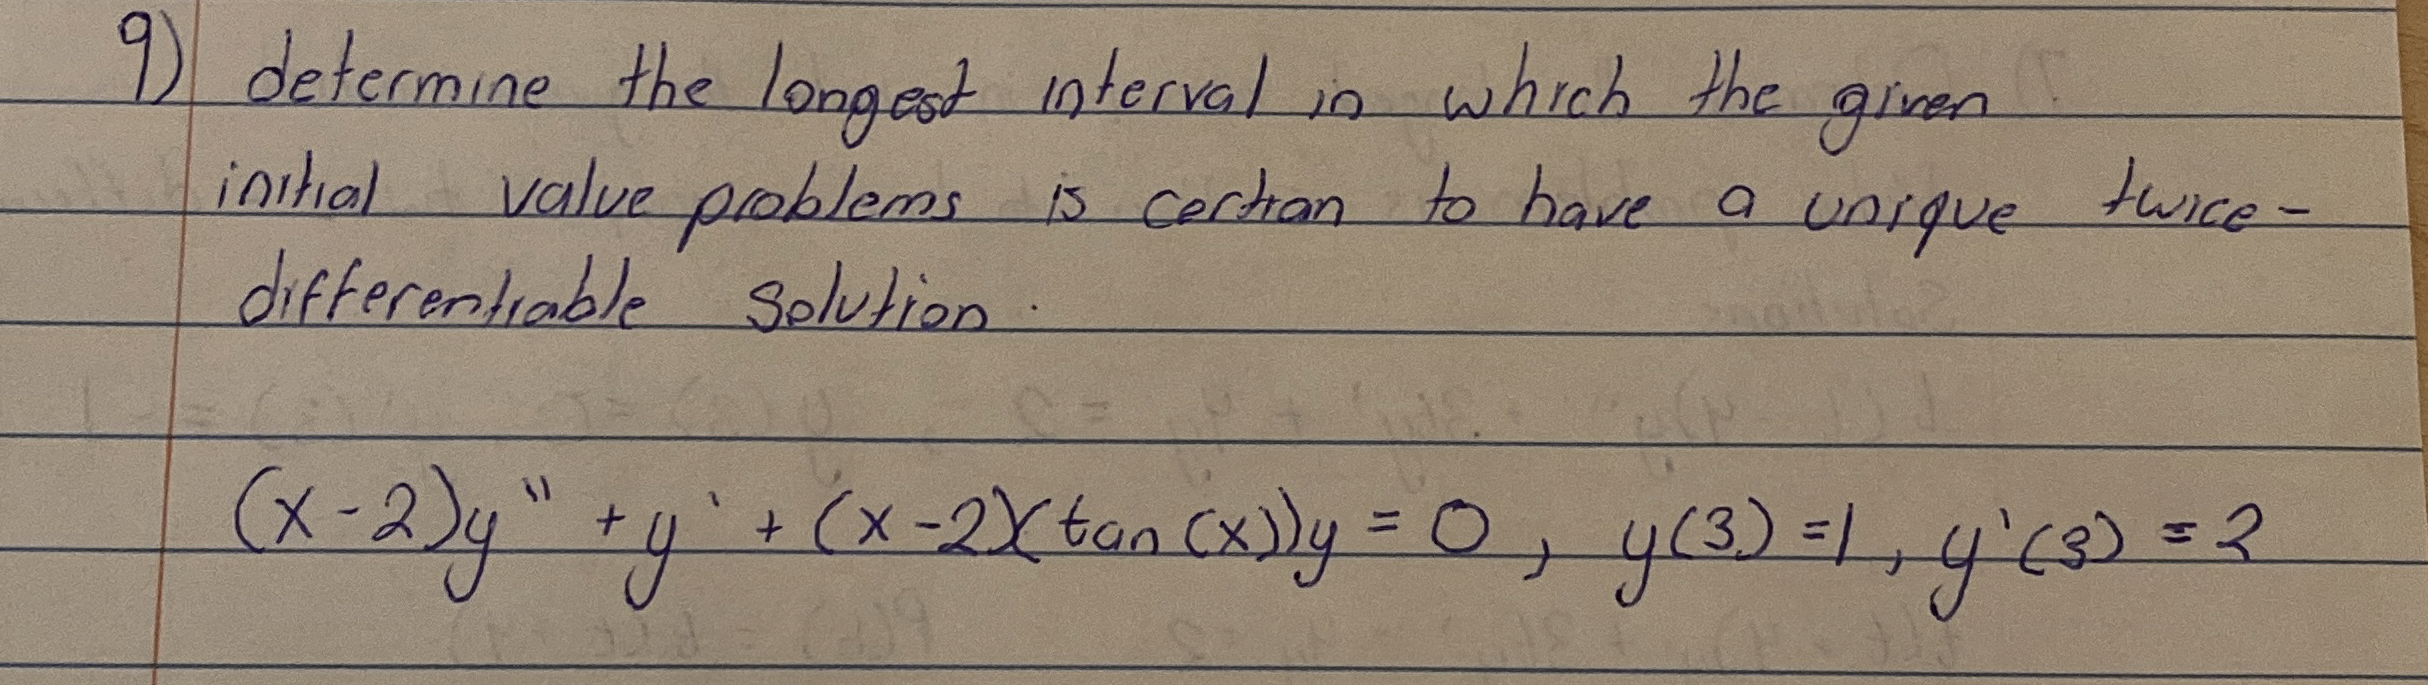 9) determine the longest interval in which the given
initial value problems is certian to have a unique twice-
differentiable solution.
(x-2)y" + y' + (x-2)(tan(x))y = 0, y(3)=1, y'(3) = 2